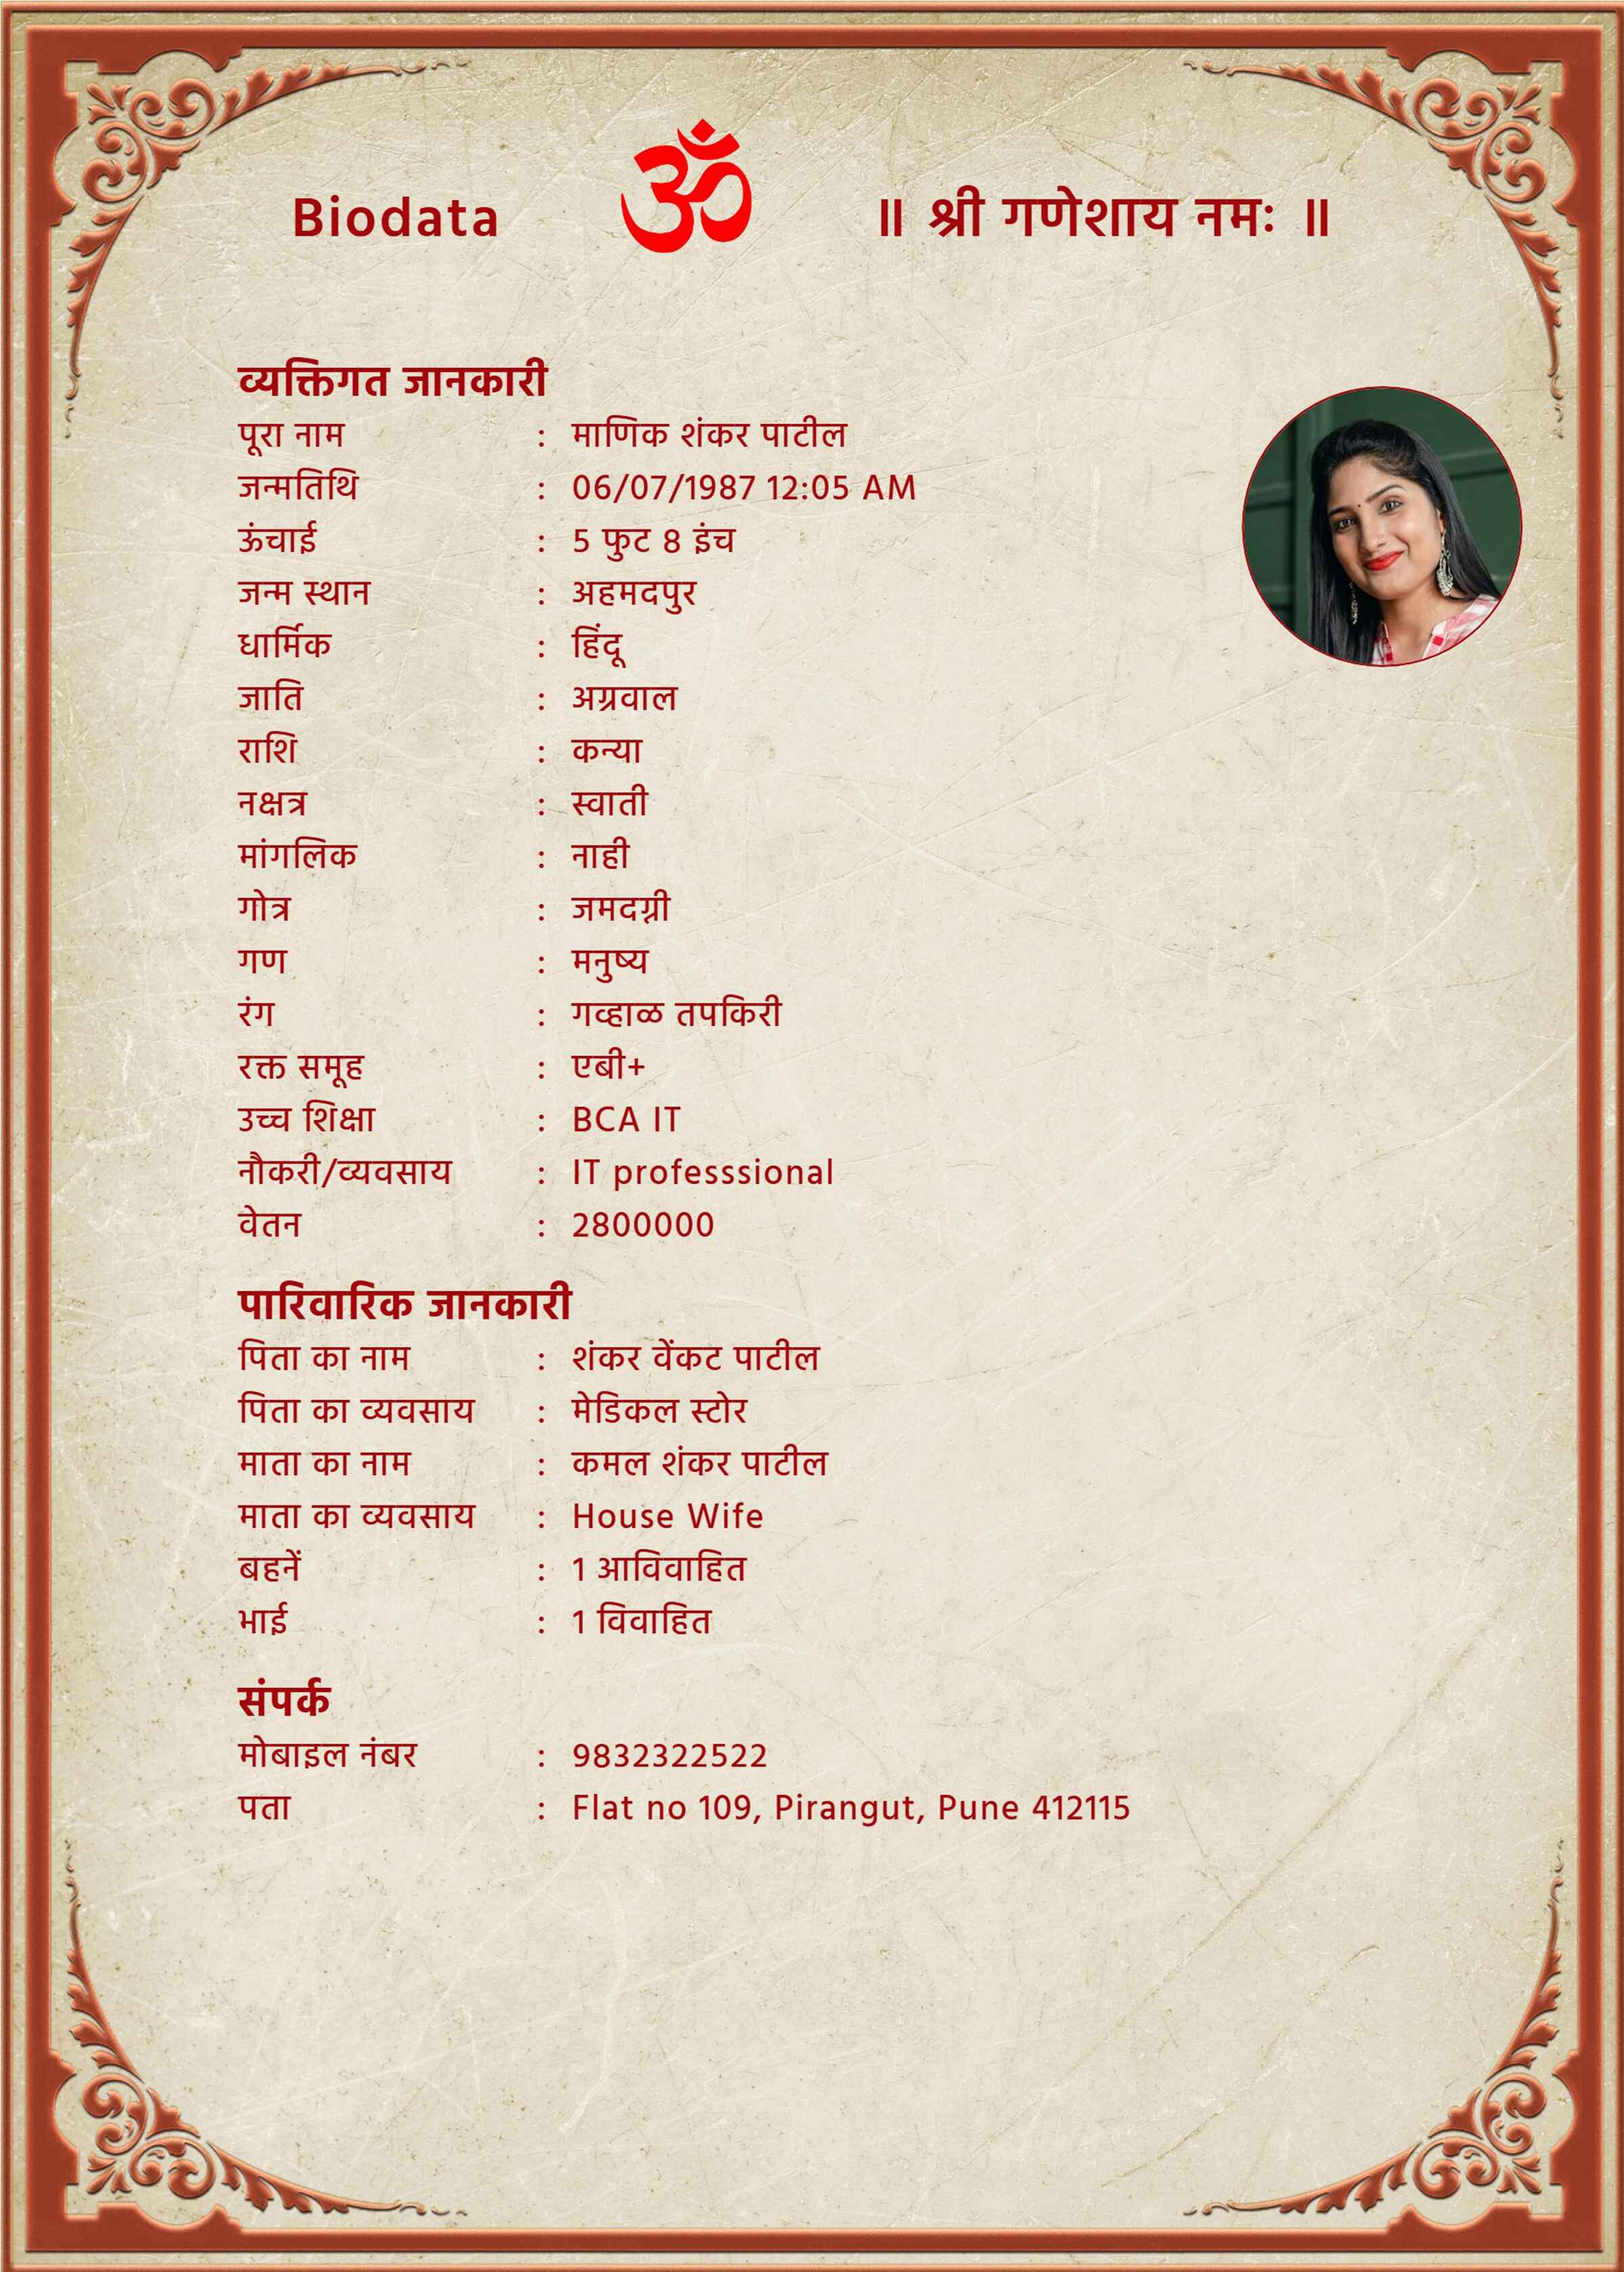 Biodata ॐ ॥ श्री गणेशाय नमः ॥
व्यक्तिगत जानकारी
पूरा नाम : माणिक शंकर पाटील
जन्मतिथि : 06/07/1987 12:05 AM
ऊंचाई : 5 फुट 8 इंच
जन्म स्थान : अहमदपुर
धार्मिक : हिंदू
जाति : अग्रवाल
राशि : कन्या
नक्षत्र : स्वाती
मांगलिक : नाही
गोत्र : जमदग्नी
गण : मनुष्य
रंग : गव्हाळ तपकिरी
रक्त समूह : एबी+
उच्च शिक्षा : BCA IT
नौकरी/व्यवसाय : IT professsional
वेतन : 2800000
पारिवारिक जानकारी
पिता का नाम : शंकर वेंकट पाटील
पिता का व्यवसाय : मेडिकल स्टोर
माता का नाम : कमल शंकर पाटील
माता का व्यवसाय : House Wife
बहनें : 1 आविवाहित
भाई : 1 विवाहित
संपर्क
मोबाइल नंबर : 9832322522
पता : Flat no 109, Pirangut, Pune 412115